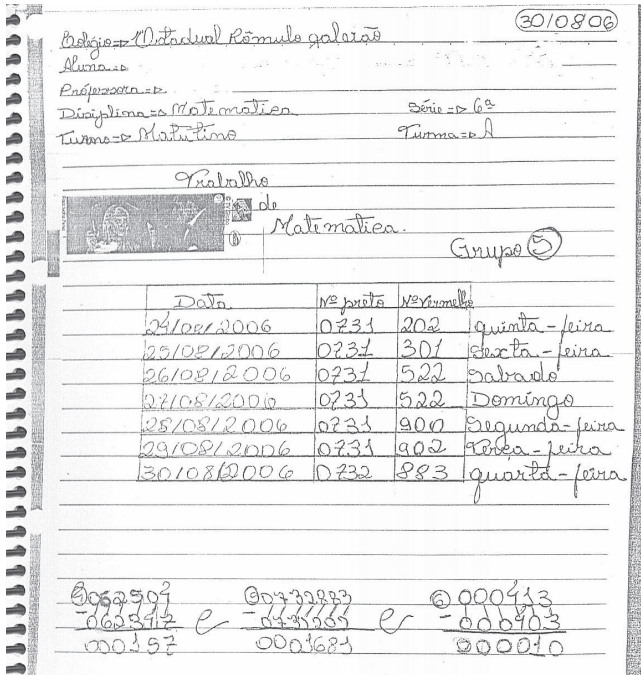 30/0806
Colégio=> Estadual Rômulo galvão
Aluna=>
Professora=>
Disciplina=> Matematica Série=> 6ª
Turno=> Matutino Turma=> A
Trabalho
de
Matematica.
Grupo 5
Data Nº preto NºVermelho
24/08/2006 0731 202 quinta-feira
25/08/2006 0731 301 Sexta-feira
26/08/2006 0731 522 Sabado
27/08/2006 0731 522 Domingo
28/08/2006 0731 900 Segunda-feira
29/08/2006 0731 902 Terça-feira
30/08/2006 0732 883 quarta-feira
e 0732883 e 6 000413
-000403
000157 0001681 000010